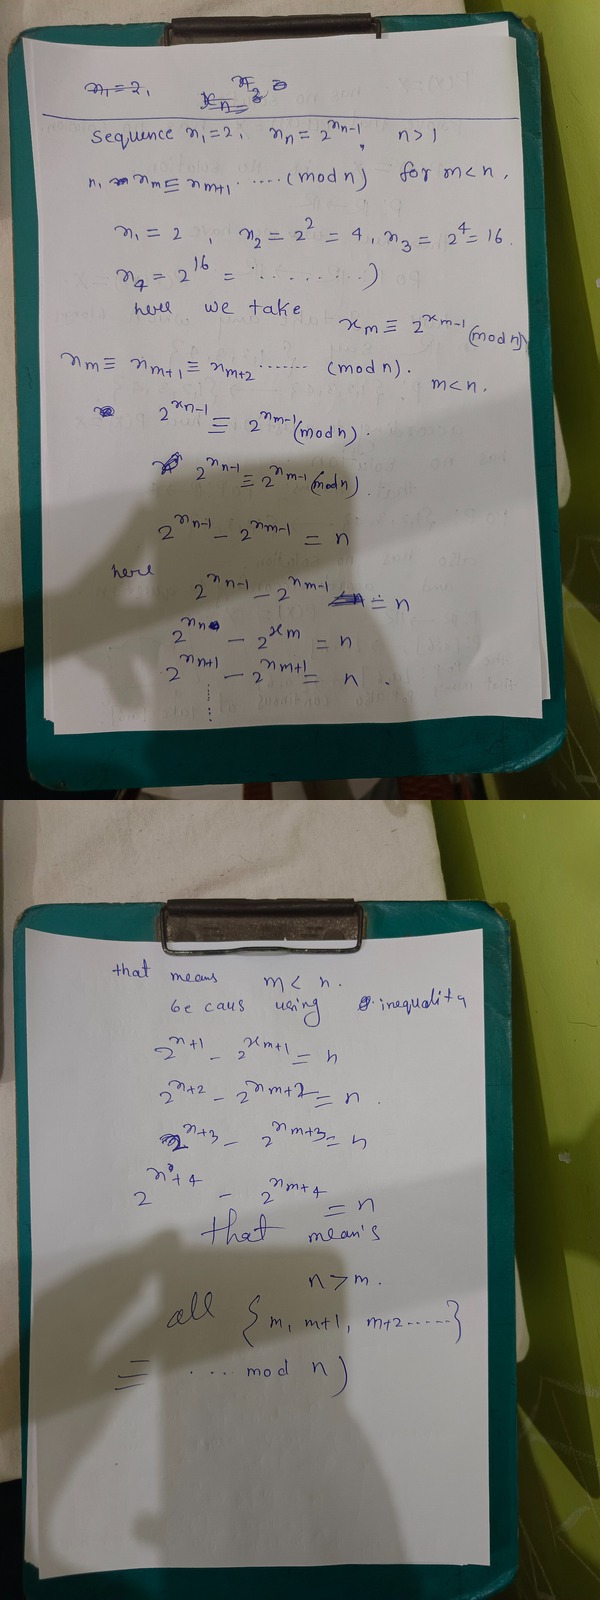 x₁ = 2,
Sequence x₁ = 2, xₙ = 2^{xₙ₋₁}, n > 1
xₘ ≡ xₘ₊₁ ..... (mod n) for m < n.
x₁ = 2 , x₂ = 2² = 4, x₃ = 2⁴ = 16.
x₄ = 2¹⁶ = ........)
here we take
xₘ ≡ 2^{xₘ₋₁} (mod n)
xₘ ≡ xₘ₊₁ ≡ xₘ₊₂ ....... (mod n).
m < n.
2^{xₙ₋₁} ≡ 2^{xₘ₋₁} (mod n).
2^{xₙ₋₁} ≡ 2^{xₘ₋₁} (mod n).
2^{xₙ₋₁} - 2^{xₘ₋₁} = n
here 2^{xₙ₋₁} - 2^{xₘ₋₁} = n
2^{xₙ} - 2^{xₘ} = n
2^{xₙ₊₁} - 2^{xₘ₊₁} = n .
that means m < n.
be caus using inequality
2^{n+1} - 2^{xₘ₊₁} = n
2^{n+2} - 2^{xₘ₊₂} = n .
2^{n+3} - 2^{xₘ₊₃} = n
2^{n+4} - 2^{xₘ₊₄} = n
that means
n > m.
all {m, m+1, m+2 .....}
≡ .... mod n)